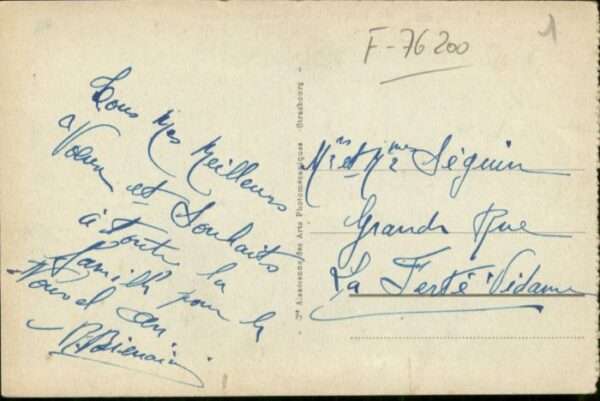 F-76200
1
Tous mes Meilleurs
Voeux et Souhaits
à toute la
famille pour le
Nouvel an.
Cie Alsacienne des Arts Photomécaniques - Strasbourg
Mr et Mme Séguin
Grande Rue
La Ferté Vidame